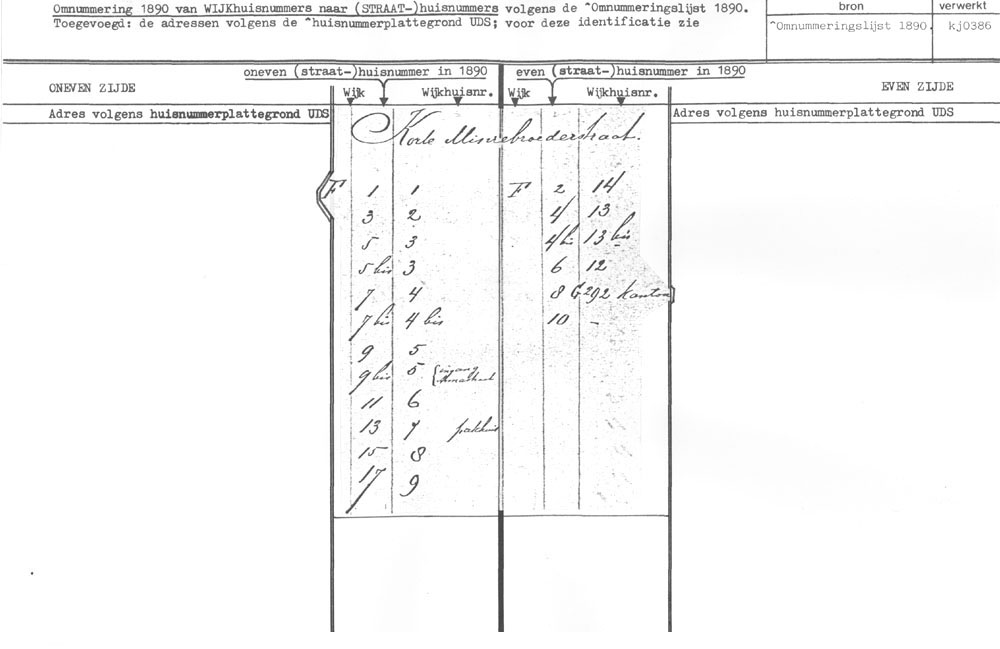 Omnummering 1890 van WIJKhuisnummers naar (STRAAT-)huisnummers volgens de ^Omnummeringslijst 1890.
Toegevoegd: de adressen volgens de ^huisnummerplattegrond UDS; voor deze identificatie zie
bron verwerkt
^Omnummeringslijst 1890. kj0386
oneven (straat-)huisnummer in 1890 even (straat-)huisnummer in 1890
ONEVEN ZIJDE Wijk Wijkhuisnr. Wijk Wijkhuisnr. EVEN ZIJDE
Adres volgens huisnummerplattegrond UDS Adres volgens huisnummerplattegrond UDS
Korte Minrebroederstraat.
F 1 1 F 2 14
3 2 4 13
5 3 4 bis 13 bis
5 bis 3 6 12
7 4 8 G 292 kantoor
7 bis 4 bis 10 -
9 5
9 bis 5 { ingang
11 6
13 7 pakhuis
15 8
17 9